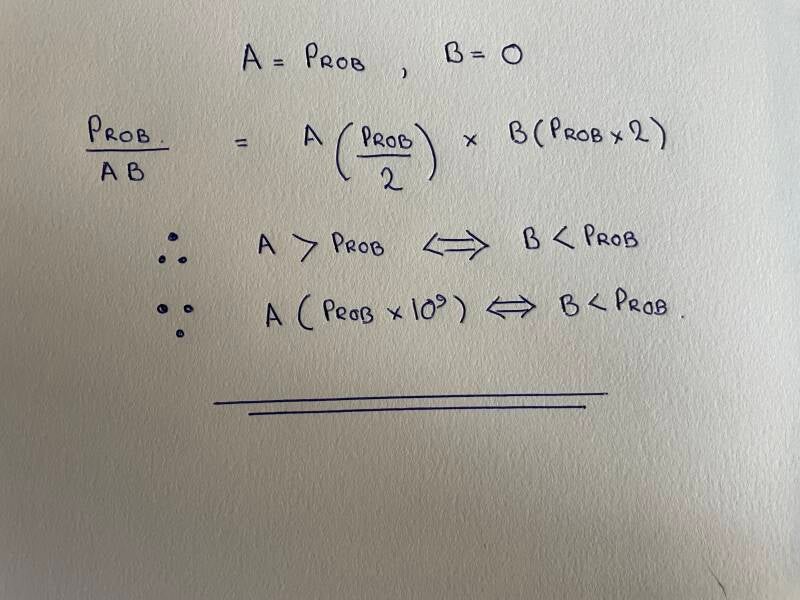 A = PROB , B = 0
PROB. / AB = A (PROB / 2) × B (PROB × 2)
∴ A > PROB ⟺ B < PROB
∵ A (PROB × 10⁹) ⟺ B < PROB.